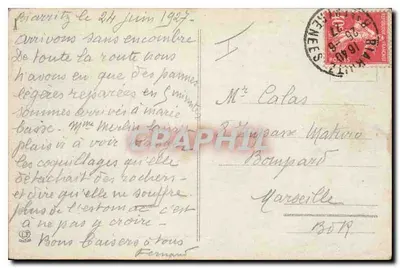 Biarritz le 24 juin 1927.
Arrivons sans encombre
De toute la route nous
n'avons eu que des pannes
légères reparées en 5 minutes
sommes arrivés à marée
basse. Mme Merlin
plaisir à voir
les coquillages qu'elle
détachait des rochers
et dire qu'elle ne souffre
plus de l'estomac c'est
à ne pas y croire.
Bons baisers à tous
Fernand
I
BIARRITZ
16 40
25 -6
27
PYRENEES
Mr Calas
3 Impasse
Bompard
Marseille
B. d R.
CARTHAPHILIE